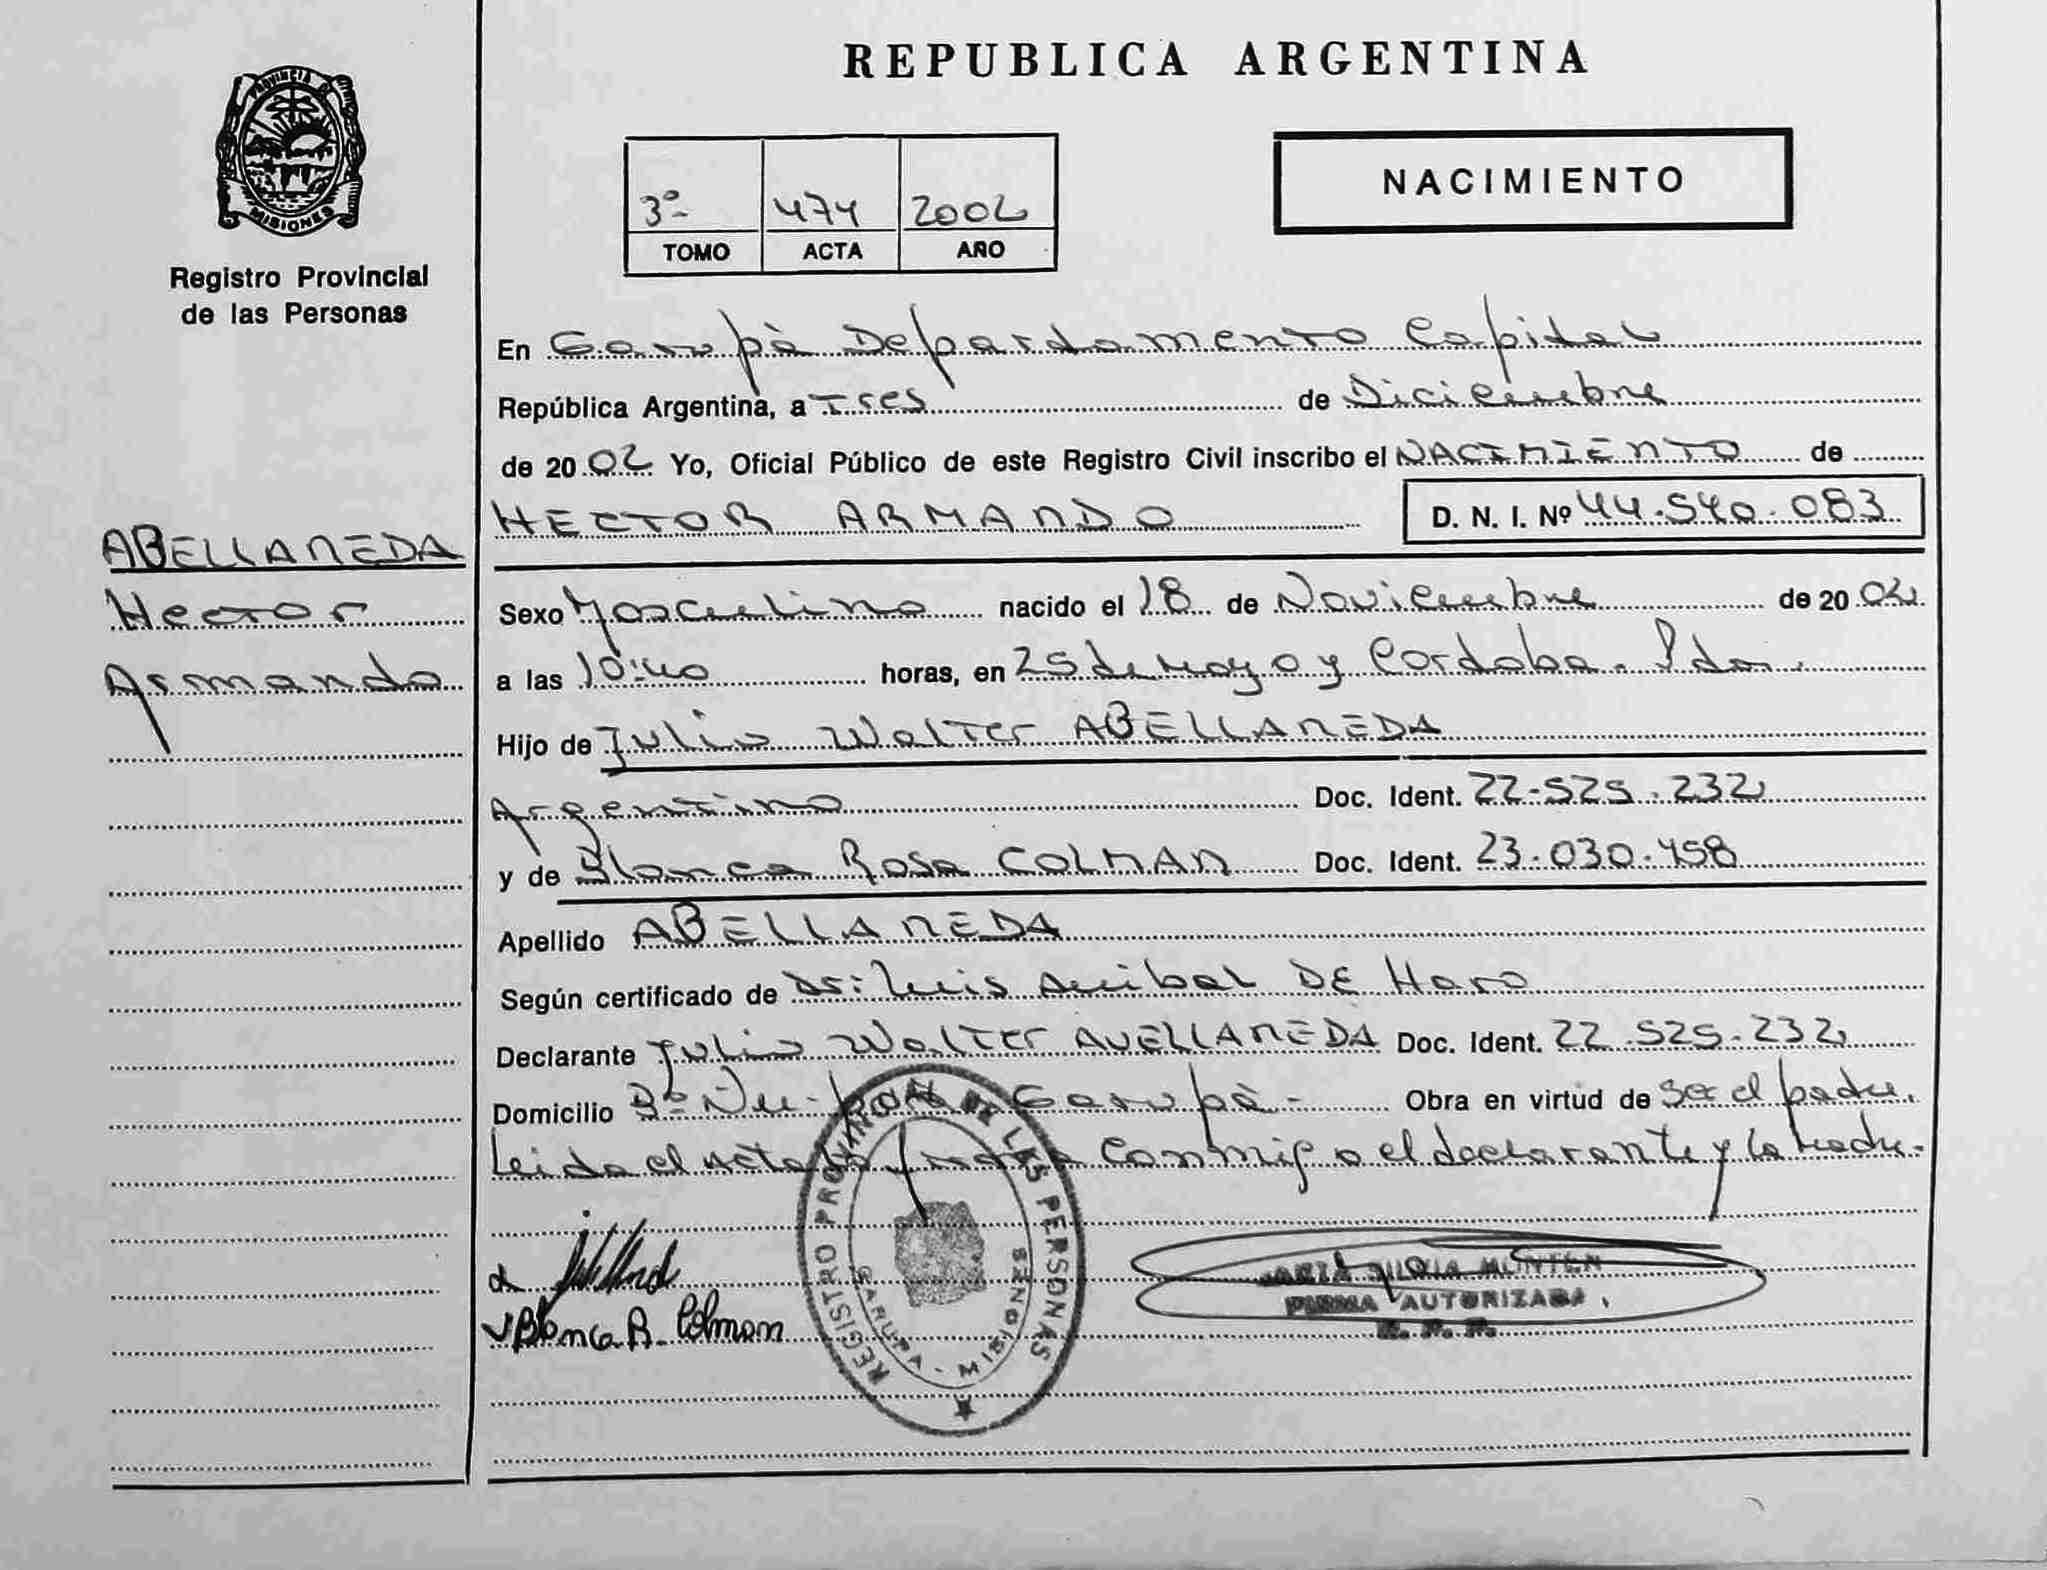 REPUBLICA ARGENTINA
PROVINCIA DE
MISIONES
Registro Provincial
de las Personas
3º- 474 2002
TOMO ACTA AÑO
NACIMIENTO
En Garupà Departamento Capital
República Argentina, a Tres de Diciembre
de 2002 Yo, Oficial Público de este Registro Civil inscribo el NACIMIENTO de
HECTOR ARMANDO D. N. I. Nº 44.540.083
ABELLANEDA
Hector
Armando
Sexo Masculino nacido el 18 de Noviembre de 2002
a las 10:40 horas, en 25 de Mayo y Cordoba. Pdas.
Hijo de Julio Walter ABELLANEDA
Argentino Doc. Ident. 22.525.232
y de Blanca Rosa COLMAN Doc. Ident. 23.030.458
Apellido ABELLANEDA
Según certificado de Dr: Luis Anibal DE Haro
Declarante Julio Walter AVELLANEDA Doc. Ident. 22.525.232
Domicilio Bº Ñu- Garupà- Obra en virtud de ser el padre.
Leida el acta conmigo el declarante y la madre.
Blanca R. Colman
REGISTRO PROVINCIAL DE LAS PERSONAS
GARUPA - MISIONES
MARIA SILVIA
FIRMA AUTORIZADA
R. P. P.